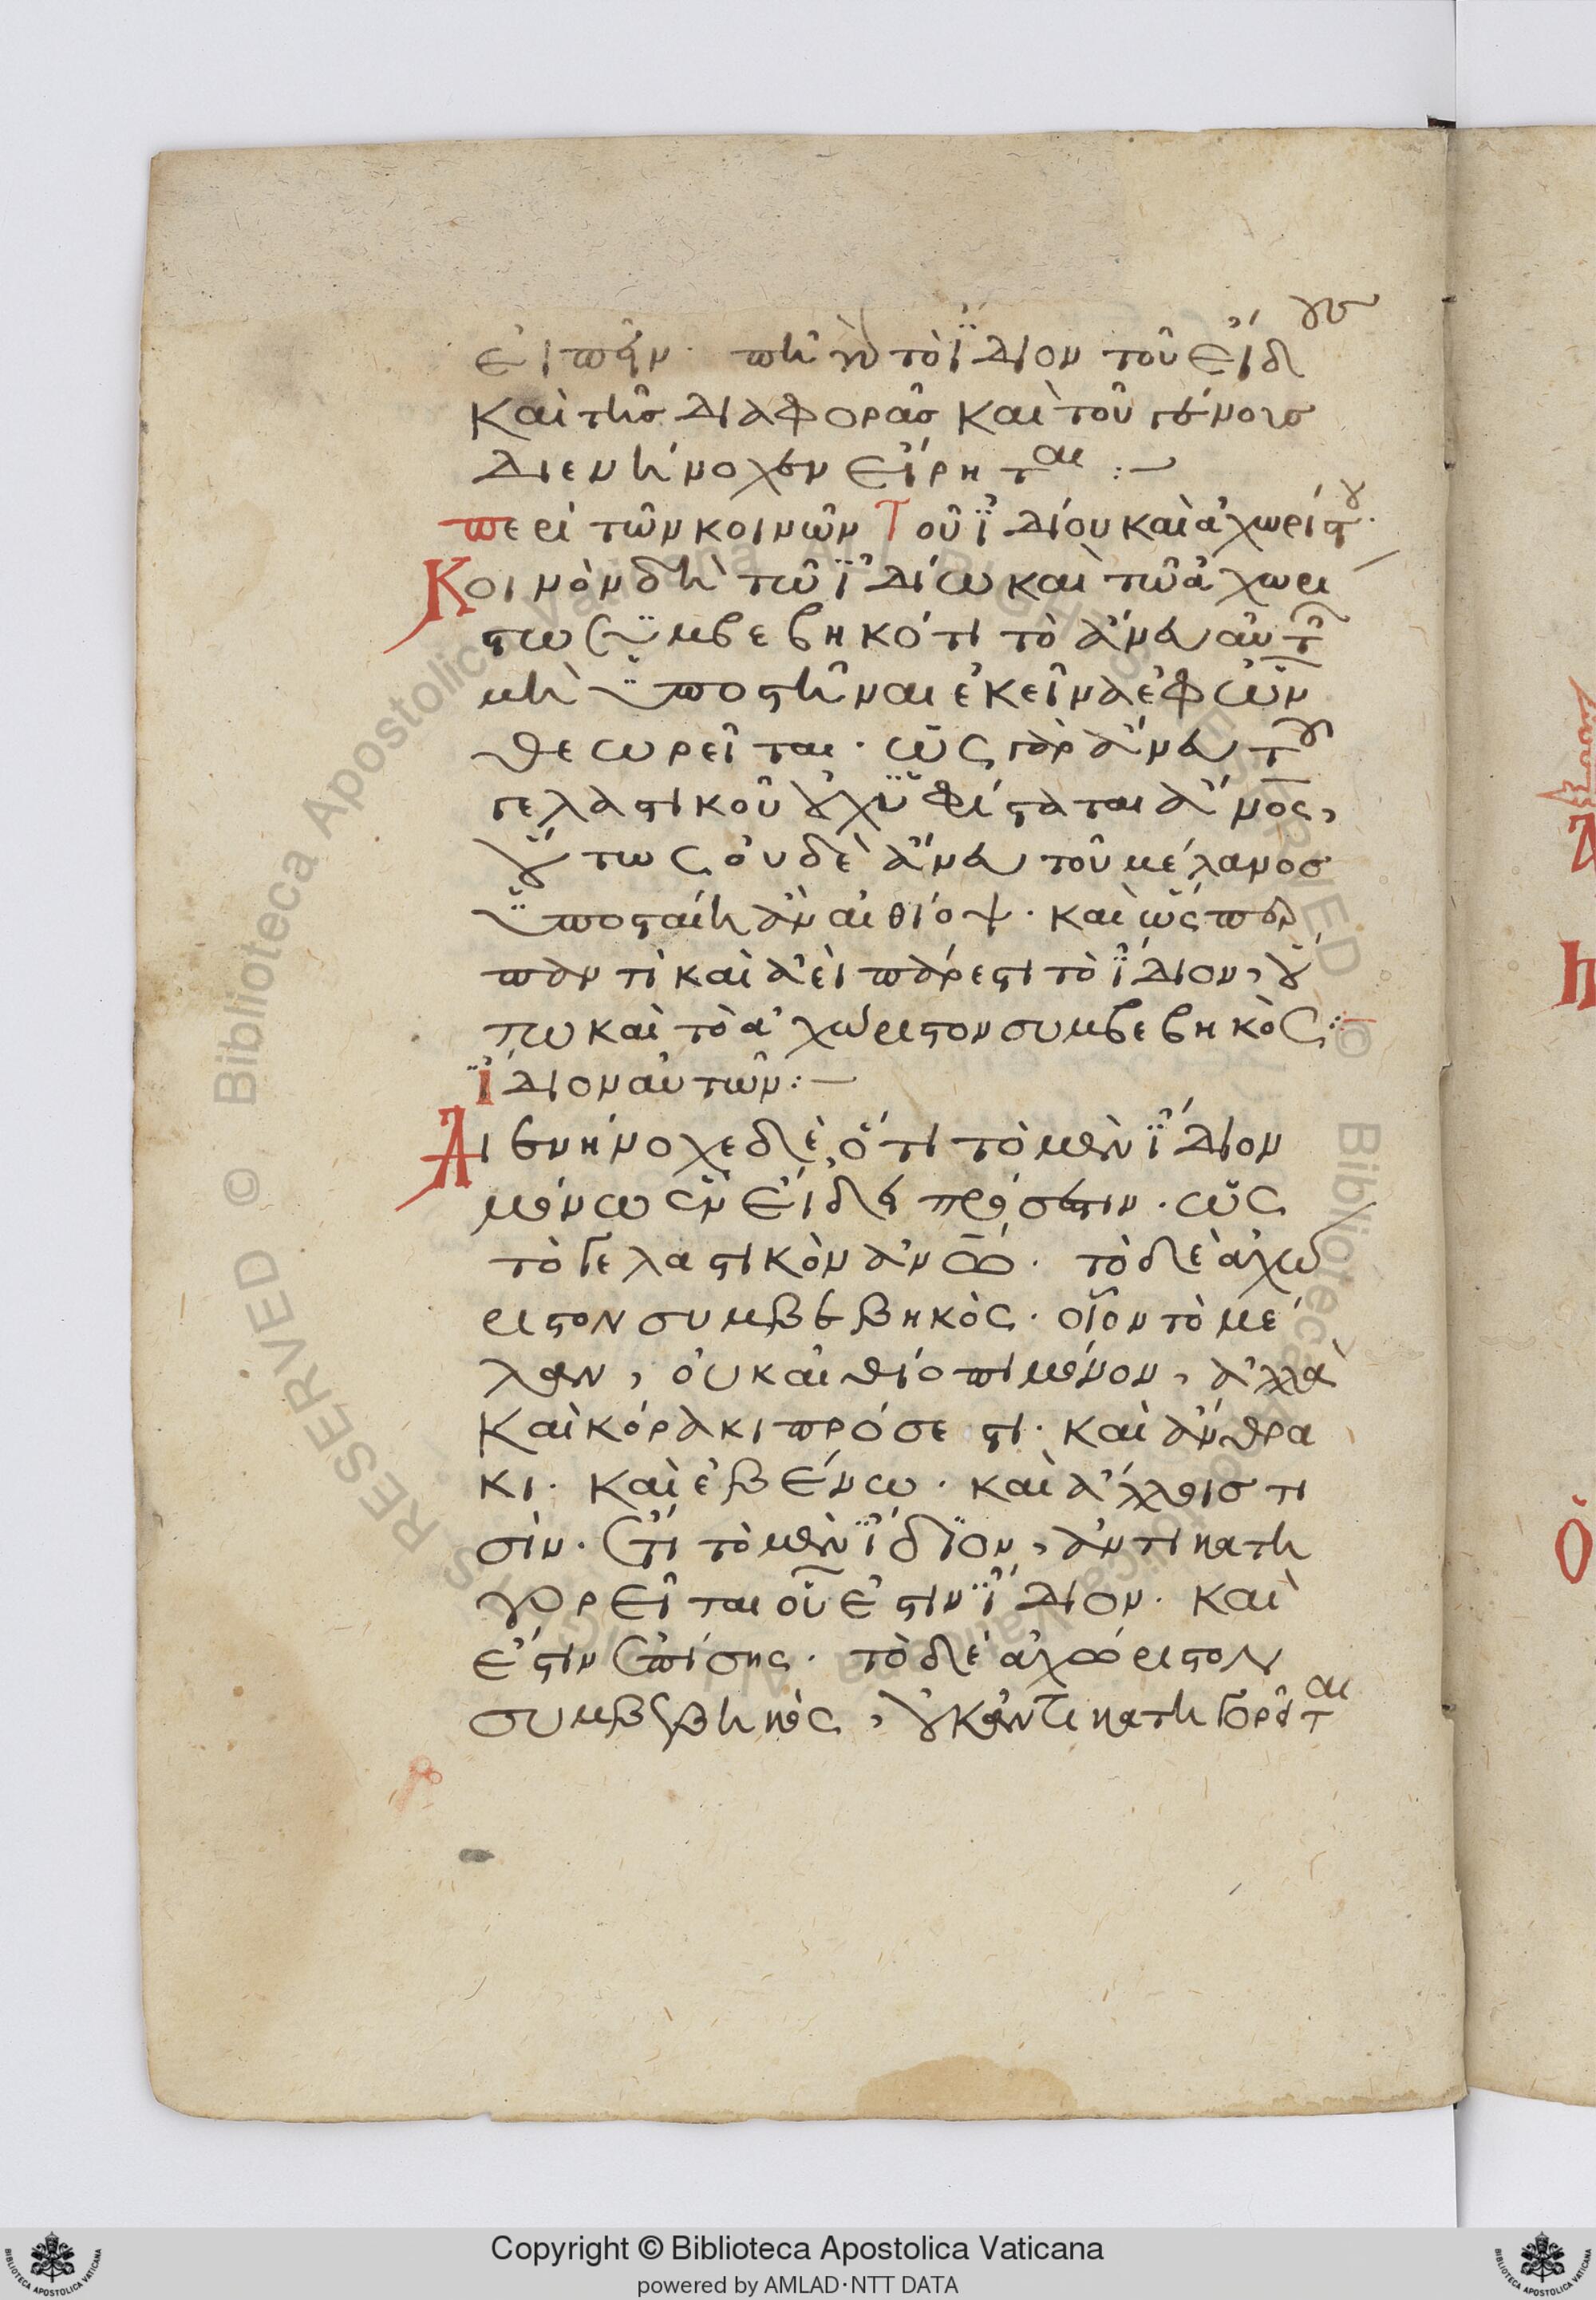 εἰπεῖν. πῆ γὰρ τὸ ἴδιον τοῦ εἴδους
καὶ τῆς διαφορᾶς καὶ τοῦ γένους
διενήνοχεν εἴρηται :—
περὶ τῶν κοινῶν τοῦ ἰδίου καὶ ἀχωρίστου.
Κοινὸν δὴ τῶ ἰδίω καὶ τῶ ἀχωρι
στω συμβεβηκότι τὸ ἄνευ αὐτῶν
μὴ ὑποστῆναι ἐκεῖνα ἐφ ὧν
θεωρεῖται. ὡς γὰρ ἄνευ τοῦ
γελαστικοῦ οὐχ ὑφίσταται ἄνος,
οὕτως οὐδὲ ἄνευ τοῦ μέλανος
ὑποσταίη ἂν αἰθίοψ. καὶ ὥσπερ
παντὶ καὶ ἀεὶ πάρεστι τὸ ἴδιον, οὕ
τω καὶ τὸ ἀχώριστον συμβεβηκὸς :
ἴδιον αὐτῶν :—
Διενήνοχε δὲ, ὅτι τὸ μὲν ἴδιον
μόνω ἑνὶ εἴδει πρόσεστιν. ὡς
τὸ γελαστικὸν ἀνω. τὸ δὲ ἀχώ
ριστον συμβεβηκὸς. οἷον τὸ μέ
λαν, οὐκ αἰθίοπι μόνον, ἀλλὰ
καὶ κόρακι πρόσεστι. καὶ ἄνθρα
κι. καὶ ἐβένω. καὶ ἄλλοις τι
σὶν. ἔτι τὸ μὲν ἴδιον, ἀντικατη
γορεῖται οὗ ἐστὶν ἴδιον. καὶ
ἔστιν ἐπίσης. τὸ δὲ ἀχώριστον
συμβεβηκὸς, οὐκ ἀντικατηγορεῖται
Copyright © Biblioteca Apostolica Vaticana
powered by AMLAD·NTT DATA